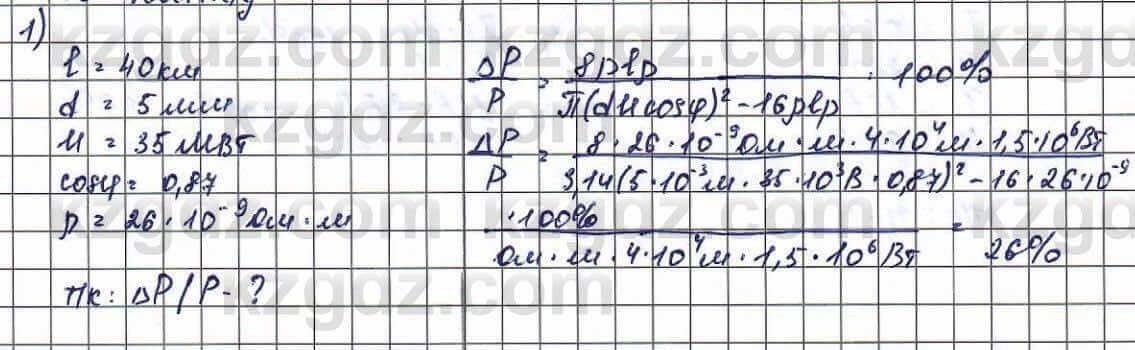 1)
l = 40км
d = 5мм
U = 35 МВт
cosφ = 0,87
ρ = 26·10⁻⁹Ом·м
Тк: ΔP/P - ?
ΔP/P = 8ρlp/(П(dUcosφ)² - 16ρlp) · 100%
ΔP/P = 8·26·10⁻⁹Ом·м·4·10⁴м·1,5·10⁶Вт/3,14(5·10⁻³м·35·10³В·0,87)² - 16·26·10⁻⁹
·100%/Ом·м·4·10⁴м·1,5·10⁶Вт = 26%
kzgdz.com